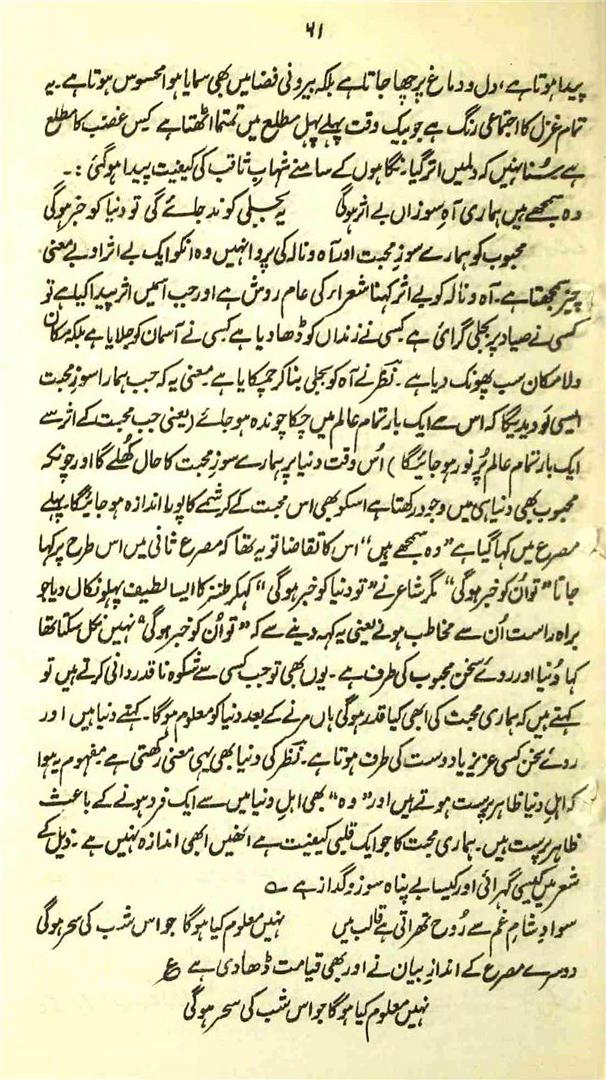 ۶۱
پیدا ہوتا ہے، دل و دماغ پر چھا جاتا ہے بلکہ بیرونی فضا میں بھی سمایا ہوا محسوس ہوتا ہے۔ یہ
تمام غزل کا اجتماعی رنگ ہے جو بیک وقت پہلے پہل مطلع میں تمتما اٹھتا ہے کیس غضب کا مطلع
ہے سُنا نہیں کہ دلمیں اتر گیا۔ نگاہوں کے سامنے شہابِ ثاقب کی کیفیت پیدا ہو گئی:۔
وہ سمجھے ہیں ہماری آہِ سوزاں بے اثر ہوگی یہ بجلی کوند جائے گی تو دنیا کو خبر ہوگی
محبوب کو ہمارے سوزِ محبت اور آہ و نالہ کی پروا نہیں وہ انکو ایک بے اثر اور بے معنی
چیز سمجھتا ہے۔ آہ و نالہ کو بے اثر کہنا شعراء کی عام روش ہے اور جب آسمیں اثر پیدا کیا ہے تو
کسی نے صیاد پر بجلی گرائی ہے کسی نے زنداں کو ڈھا دیا ہے کسی نے آسمان کو جلایا ہے بلکہ مکان
و لامکان سب پھونک دیا ہے۔ نظر نے آہ کو بجلی بنا کر چمکایا ہے یعنی یہ کہ جب ہمارا سوزِ محبت
ایسی لَو دیدیگا کہ اس سے ایک بار تمام عالم میں چکا چوندہ ہو جائے (یعنی جب محبت کے اثر سے
ایک بار تمام عالم پُر نور ہو جائیگا) اُس وقت دنیا پر ہمارے سوزِ محبت کا حال کُھلے گا اور چونکہ
محبوب بھی دنیا ہی میں وجود رکھتا ہے اسکو بھی اس محبت کے کرشمے کا پورا اندازہ ہو جائیگا۔ پہلے
مصرع میں کہا گیا ہے "وہ سمجھے ہیں" اس کا تقاضا تو یہ تھا کہ مصرع ثانی میں اس طرح پر کہا
جاتا "تو اُن کو خبر ہوگی" مگر شاعر نے "تو دنیا کو خبر ہوگی" کہکر طنز کا ایسا لطیف پہلو نکال دیا جو
براہ راست اُن سے مخاطب ہونے یعنی یہ کہہ دینے سے کہ "تو اُن کو خبر ہوگی" نہیں نکل سکتا تھا
کہا دُنیا اور روئے سخن محبوب کی طرف ہے۔ یوں بھی تو جب کسی سے شکوہ ناقدر دانی کرتے ہیں تو
کہتے ہیں کہ ہماری محبت کی ابھی کیا قدر ہوگی ہاں مرنے کے بعد دنیا کو معلوم ہوگا۔ کہتے دنیا ہیں اور
روئے سخن کسی عزیز یا دوست کی طرف ہوتا ہے۔ نظر کی دنیا بھی یہی معنی رکھتی ہے مفہوم یہ ہوا
کہ اہلِ دنیا ظاہر پرست ہوتے ہیں اور "وہ" بھی اہلِ دنیا میں سے ایک فرد ہونے کے باعث
ظاہر پرست ہیں۔ ہماری محبت کا جو ایک قلبی کیفیت ہے انھیں ابھی اندازہ نہیں ہے۔ ذیل کے
شعر میں کیسی گہرائی اور کیسا بے پناہ سوز و گداز ہے ؎
سوادِ شامِ غم سے رُوح تھراتی ہے قالب میں نہیں معلوم کیا ہوگا جو اس شب کی سحر ہوگی
دوسرے مصرع کے اندازِ بیان نے اور بھی قیامت ڈھا دی ہے ع
نہیں معلوم کیا ہوگا جو اس شب کی سحر ہوگی